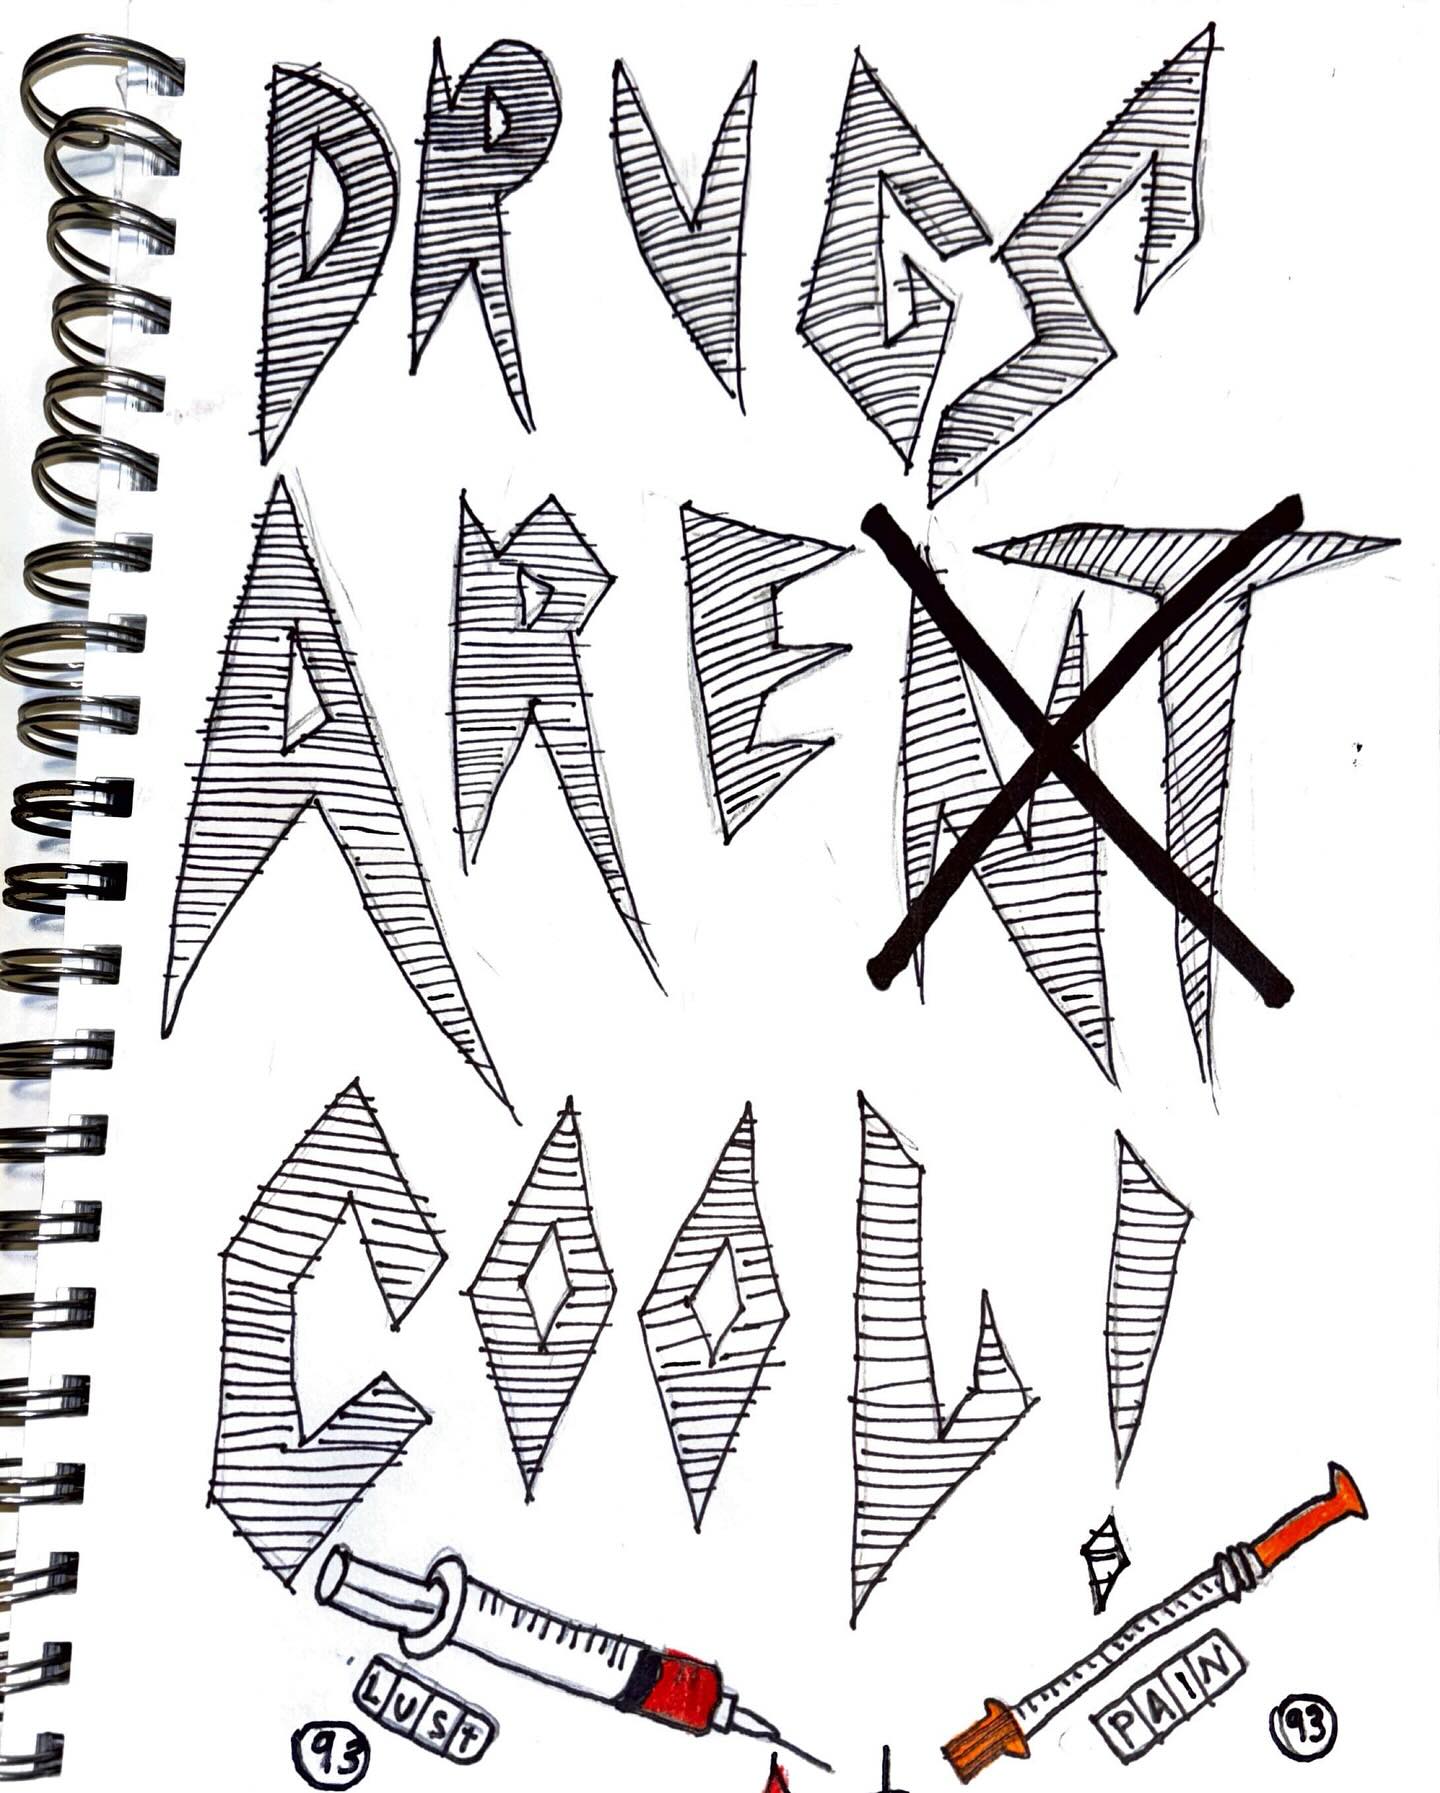 DRUGS
ARENT
COOL!
LUST
PAIN
93
93